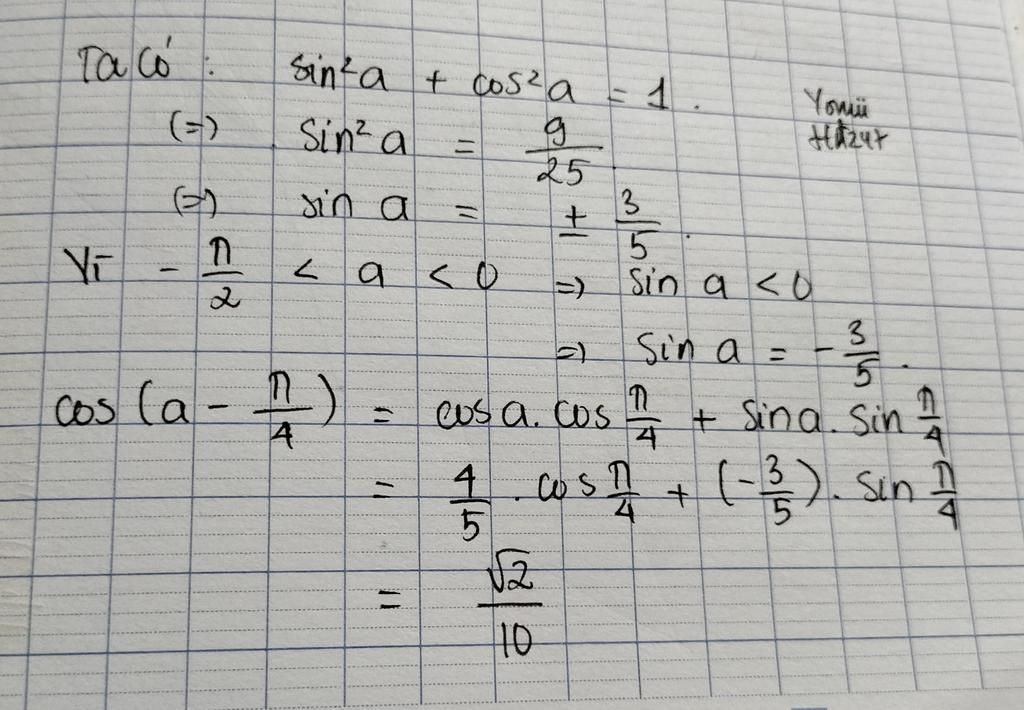 Ta có : sin²a + cos²a = 1.
(=) sin²a = 9/25
(=) sin a = ± 3/5.
Vì - π/2 < a < 0 => sin a < 0
=> sin a = - 3/5.
cos(a - π/4) = cos a. cos π/4 + sin a. sin π/4
= 4/5 . cos π/4 + (-3/5). sin π/4
= √2/10